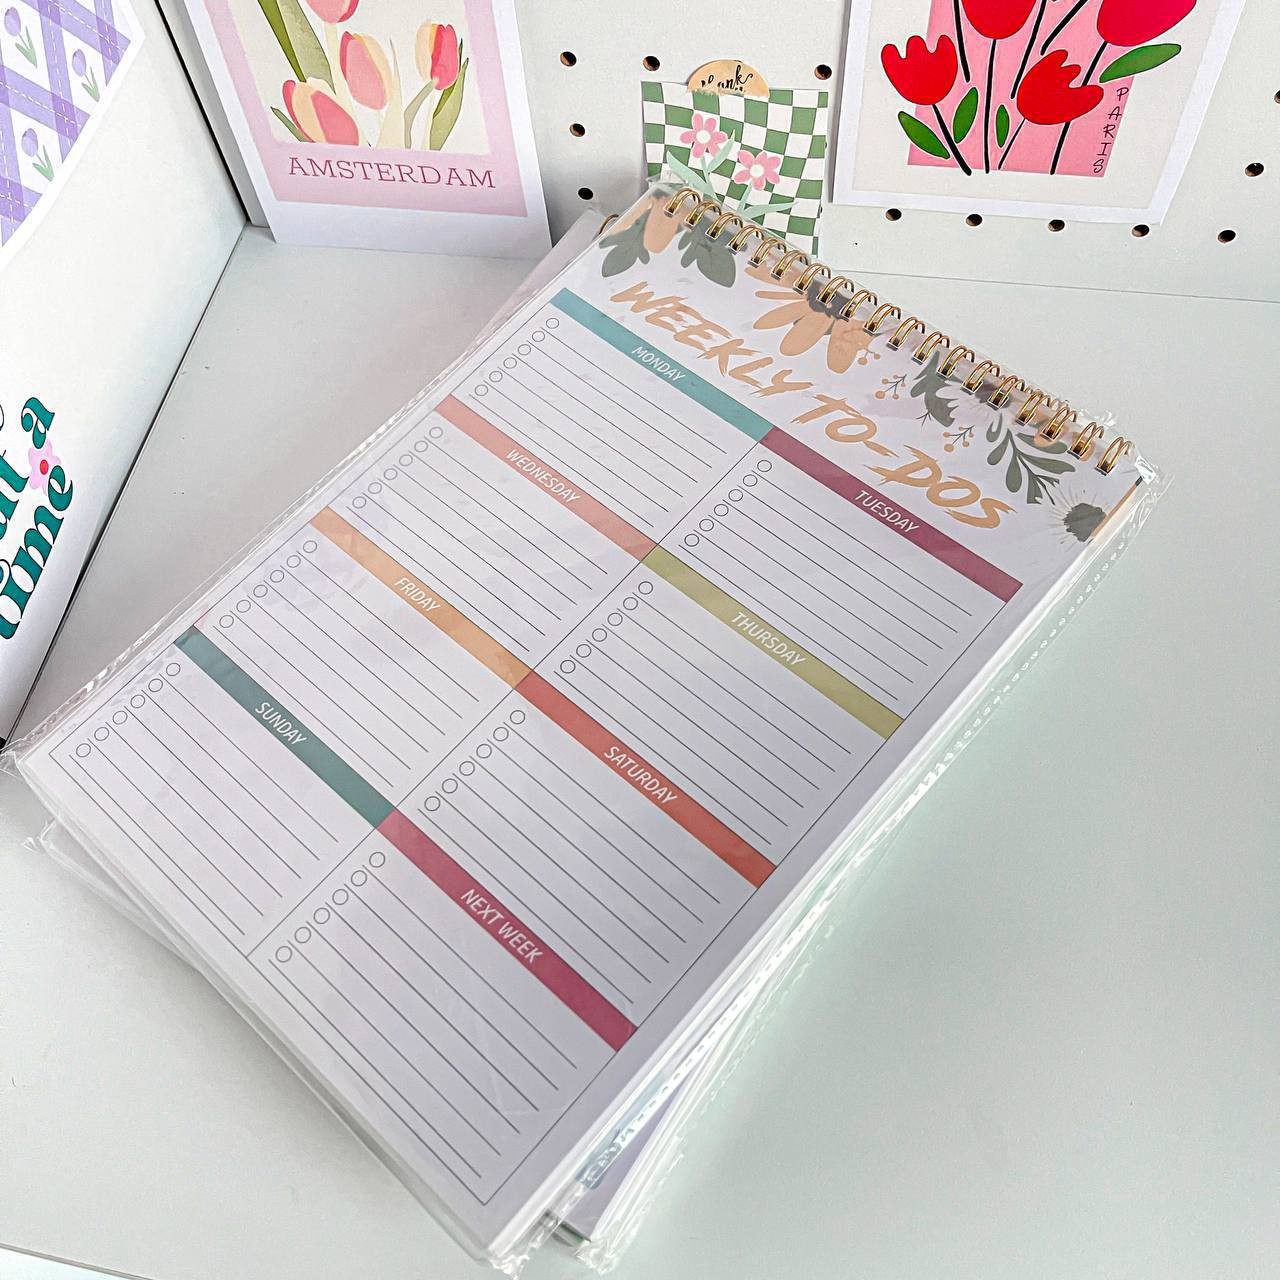 AMSTERDAM
PARIS
WEEKLY TO-DOS
MONDAY
TUESDAY
WEDNESDAY
THURSDAY
FRIDAY
SATURDAY
SUNDAY
NEXT WEEK
a